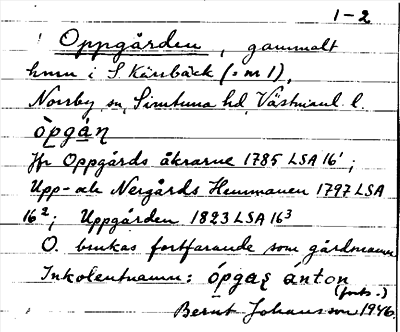 1-2
Oppgården, gammalt
hmn i S Kärrbäck (= nr 1),
Norrby sn, Simtuna hd, Västmanl. l.
òpgáṇ
Jfr Oppgårds åkrarne 1785 LSA 16¹;
Upp- och Nergårds Hemmanen 1797 LSA
16²; Uppgården 1823 LSA 16³
O. brukas fortfarande som gårdsnamn
Inkolentnamn: ópgas ánton
(forts.)
Bernt Johansson 1946.